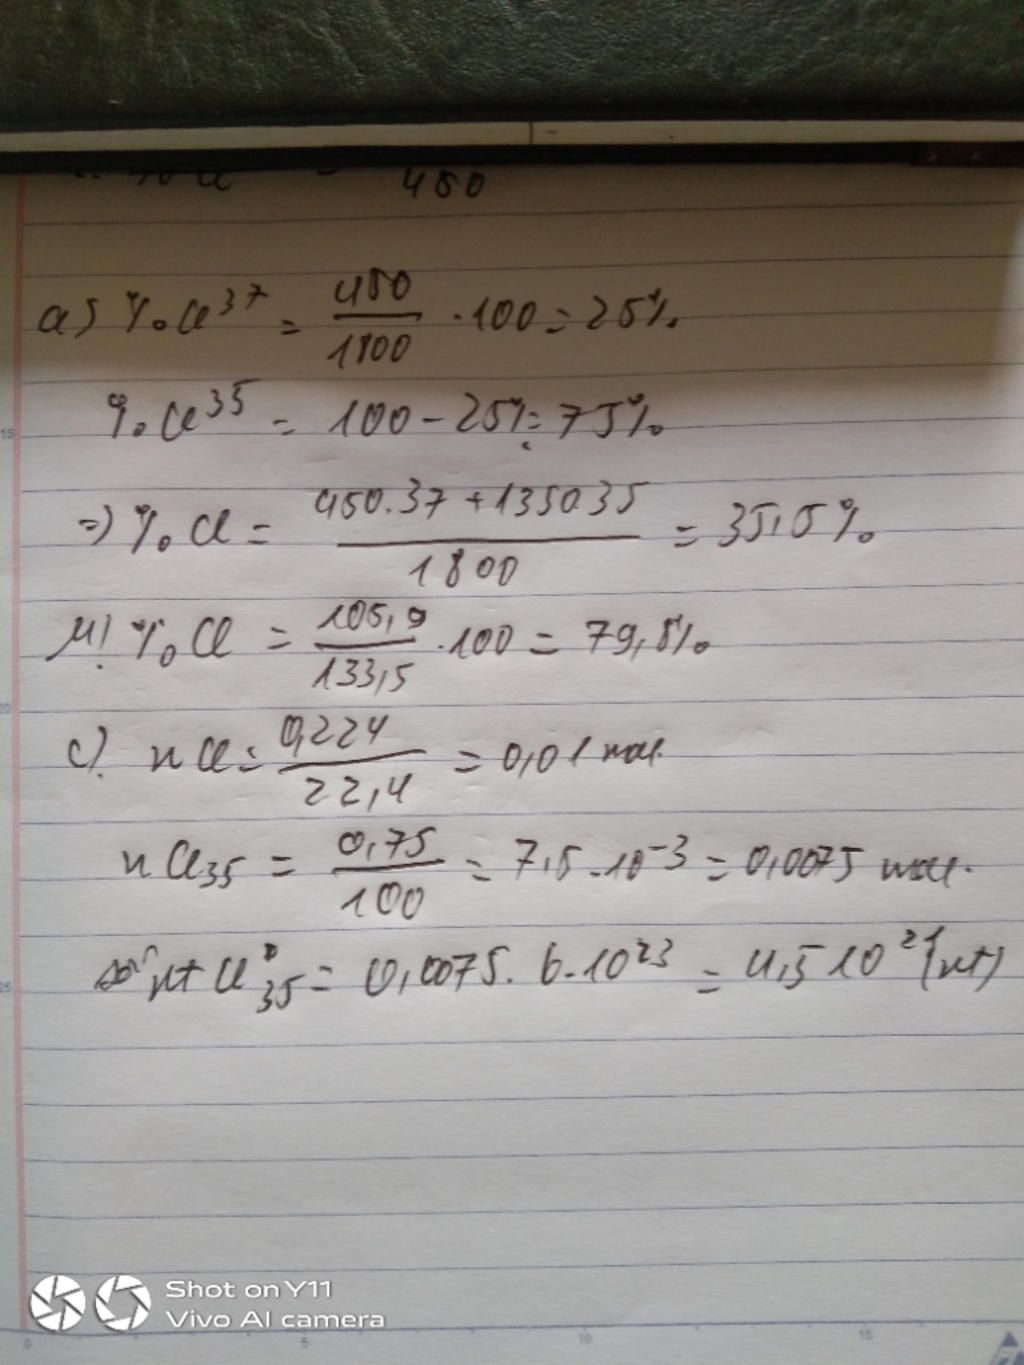 450
a) % Cl³⁷ = 450/1800 . 100 = 25%
% Cl³⁵ = 100 - 25% = 75%
=) % Cl = 450.37 + 1350 35/1800 = 35,5%
! % Cl = 106,9/133,5 . 100 = 79,8%
c). nCl = 0,224/22,4 = 0,01 mol.
nCl₃₅ = 0,75/100 = 7,5 . 10⁻³ = 0,0075 mol.
nt Cl₃₅ = 0,0075 . 6 . 10²³ = 4,5 10²¹ (nt)
Shot on Y11
Vivo AI camera
15
20
25
0 5 10 15